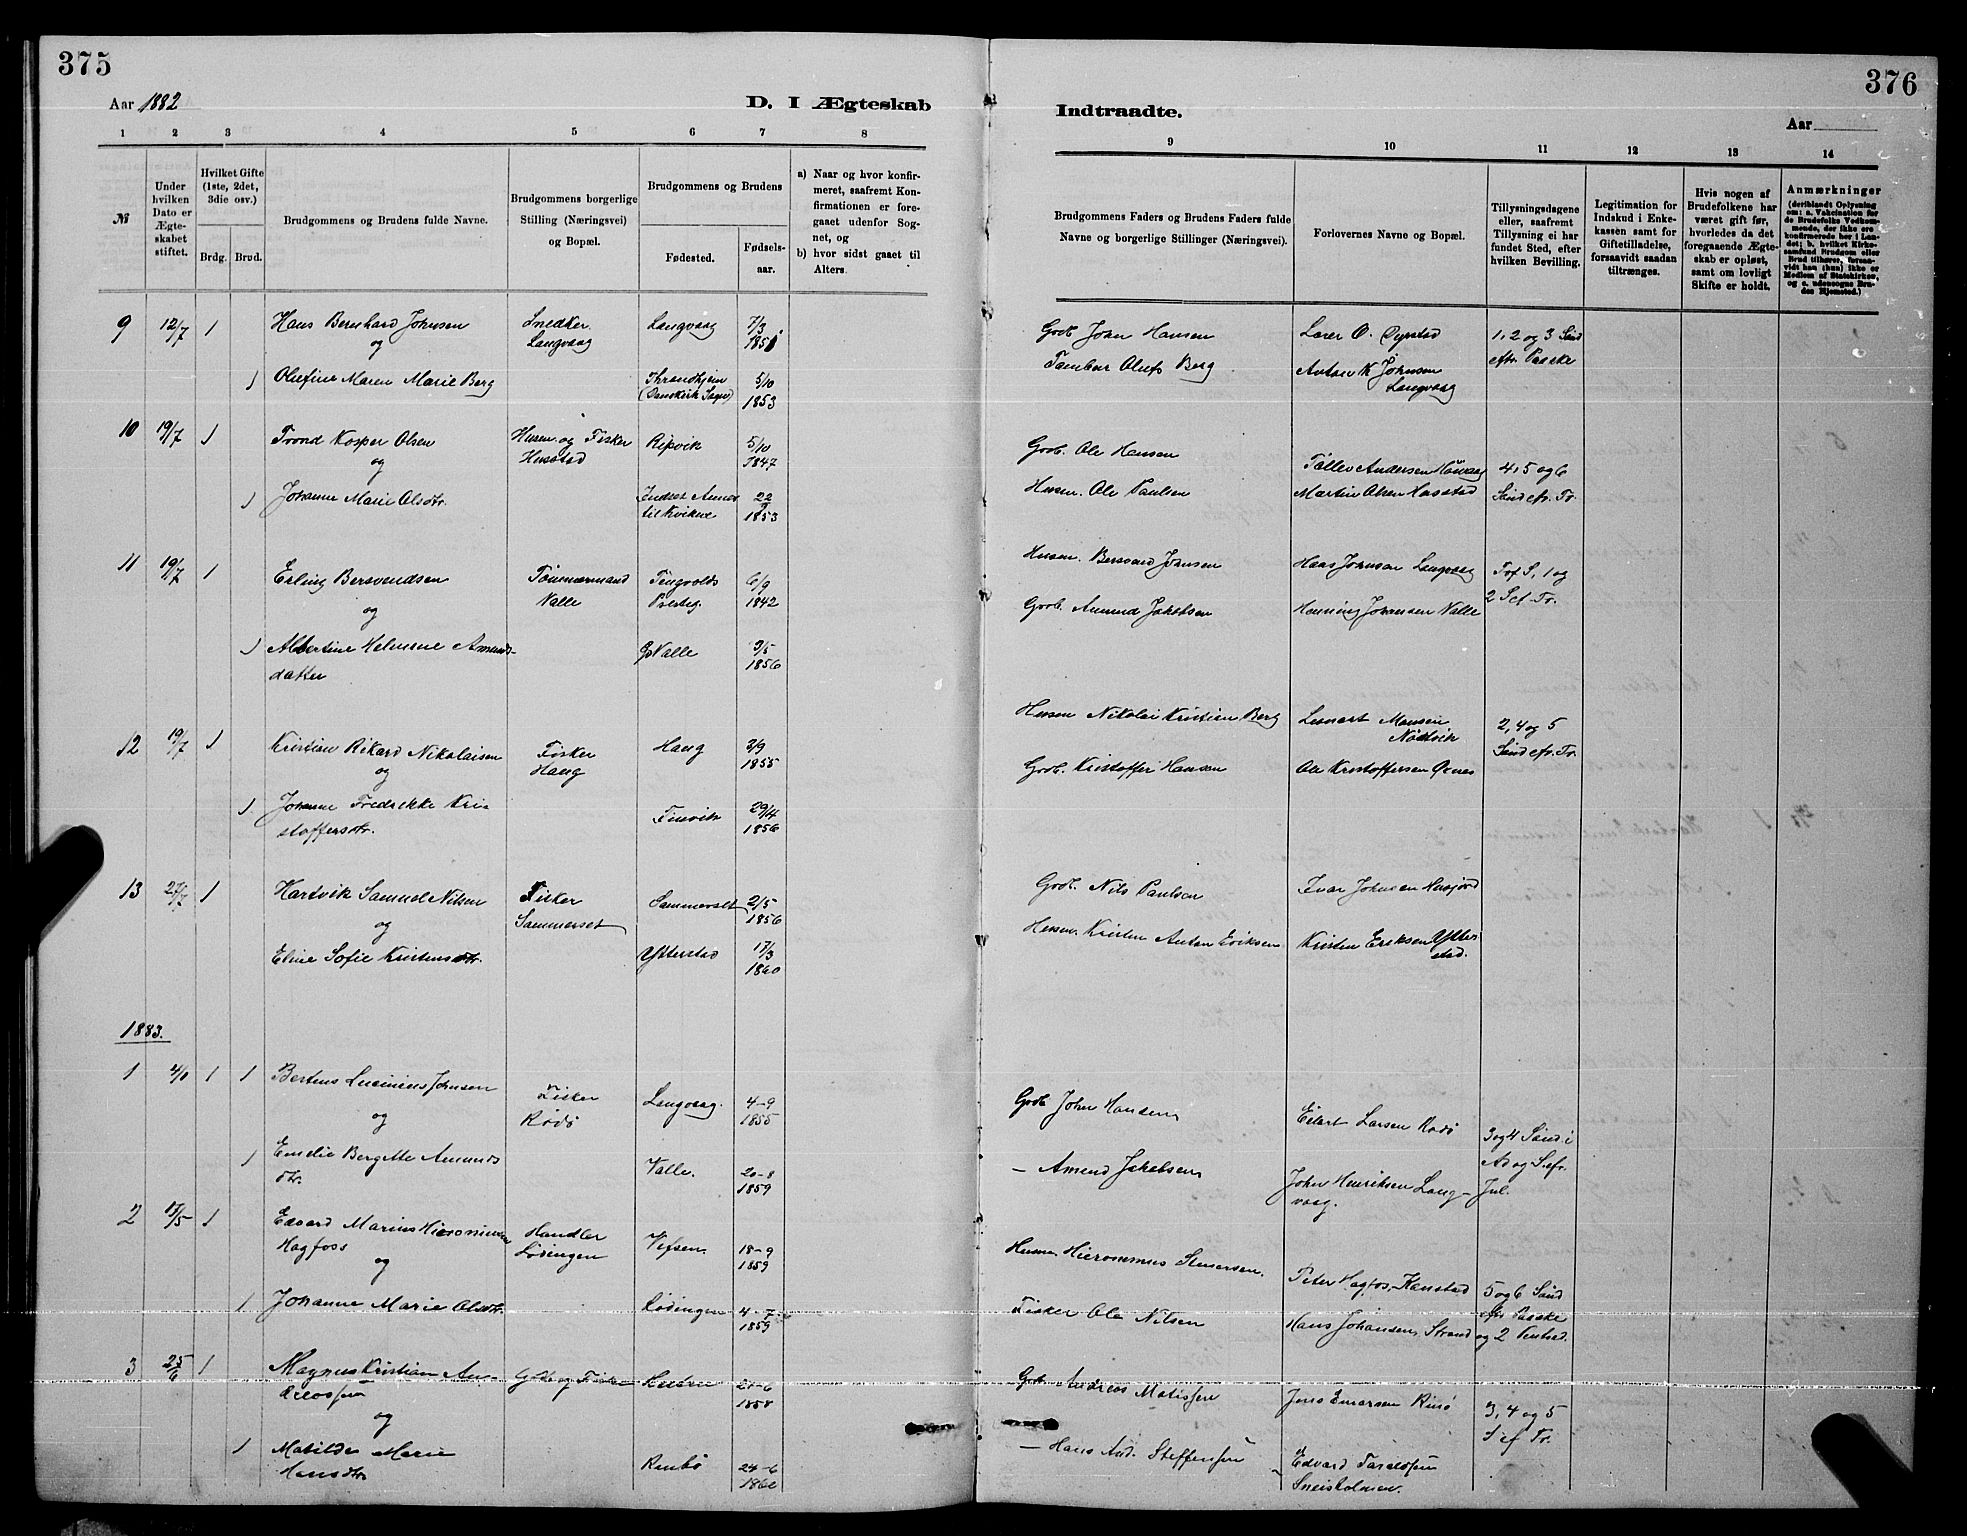 375
Aar 1882
D. I Ægteskab
1 2 3 4 5 6 7 8
№
Under hvilken Dato er Ægteskabet stiftet.
Hvilket Gifte (1ste, 2det, 3die osv.)
Brdg. Brud.
Brudgommens og Brudens fulde Navne.
Brudgommens borgerlige Stilling (Næringsvei) og Bopæl.
Brudgommens og Brudens
Fødested.
Fødsels-aar.
a) Naar og hvor konfir-
meret, saafremt Kon-
firmationen er fore-
gaaet udenfor Sog-
net, og
b) hvor sidst gaaet til
Alters.
9 12/7 1 Hans Bernhard Johnsen Snedker Langvaag 7/3
og Langvaag 1851
1 Olufine Maren Marie Berg Throndhjem 5/10
(Domkirk Sogn) 1853
10 19/7 1 Trond Kosper Olsen Husm. og Fisker Ripvik 5/10
og Husstad 1847
1 Johanne Marie Olsdtr. Indset Annex 22
til Kvikne 1853
11 19/7 1 Erling Bersvendsen Tømmermand Tingvolds 6/9
og Valle Præsteg. 1842
1 Albertine Helmine Amunds- Valle 3/5
datter 1856
12 19/7 1 Kristian Rikard Nikolaisen Fisker Haug 3/9
og Haug 1855
1 Johanne Fredrikke Kri- Finvik 29/4
stoffersdtr. 1856
13 27/7 1 Hartvik Samuel Nilsen Fisker Sammerset 2/5
og Sammerset 1856
Eline Sofie Kristensdtr. Ytterstad 17/3
1860
1883.
1 1 1 Bertens Lucinius Johnsen Fisker Langvaag. 4-9
og Rødø 1855
1 Emelie Bergitte Amunds Valle. 20-8
dtr. 1859
2 13/5 1 Edvard Marius Hieronimusen Handler Vefsen. 18-9
Hagfoss Lødingen 1859
og
1 Johanne Marie Olsdtr. Lødingen 4-7
1859
3 25/6 1 Magnus Kristian An- Gbr. og Fisker
dreassen 1858
og
1 Matilde Marie Rinbø 24-6
Hansdtr.
376
Indtraadte.
Aar
9 10 11 12 13 14
Brudgommens Faders og Brudens Faders fulde
Navne og borgerlige Stillinger (Næringsvei).
Forlovernes Navne og Bopæl.
Tillysningsdagene
eller, saafremt
Tillysning ei har
fundet Sted, efter
hvilken Bevilling.
Legitimation for
Indskud i Enke-
kassen samt for
Giftetilladelse,
forsaavidt saadan
tiltrænges.
Hvis nogen af
Brudefolkene har
været gift før,
hvorledes da det
foregaaende Ægte-
skab er opløst,
samt om lovligt
Skifte er holdt.
Anmærkninger
(deriblandt Oplysning
om: a. Vakcination for
de Brudefolks Vedkom-
mende, der ikke ere
konfirmerede her i Lan-
det; b. hvilket Kirke-
samfund Brudgom eller
Brud tilhører, forsaa-
vidt han (hun) ikke er
Medlem af Statskirken,
og c. udensogns Bru-
des Hjemsted.)
Grdb. John Hansen Lærer O. Dyrstad 1, 2 og 3 Sønd
Tambur Olufs Berg Anton K Johnsen efr. Paaske
Langvaag
Grdb. Ole Hansen Tollev Andersen 4, 5 og 6
Husm. Ole Paulsen Martin Olsen Husstad Sønd efr. Tr.
Husm. Bersvend Johnsen Hans Johnsen Langvaag Tref S, 1 og
Grdb. Amund Jakobsen Henning Johansen Valle 2 S ef. Tr.
Husm Nikolai Kristian Berg Lennart Monsen 2, 4 og 5
Nødtvik Sønd efr. Tr.
Grdb. Kristoffer Hansen Ole Kristoffersen Øxnes
Grdb. Nils Paulsen Ivar Johnsen Husjord
Husm. Kristen Anton Eriksen Kristen Eriksen Ytter-
stad.
Grdb John Hansen Eilert Larsen Rødø 3 og 4 Sønd i
Ad og S. efr.
— Amund Jakobsen John Henriksen Lang- Jul.
vaag.
Husm. Hieronimus Stenersen. Peter Hagfos, Kanstad 5 og 6 Sønd
efr. Paaske
Fisker Ole Nilsen Hans Johansen, Strand og 2 Pentsd.
Grdb. Andreas Matissen Jens Einarsen Rinø 3, 4 og 5
S ef Tr.
— Hans And. Steffensen Edvard Taraldsen
Sneisholmen.